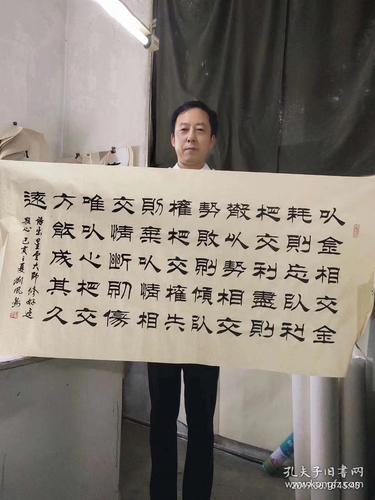 以金相交金
耗則忘以利
相交利盡則
散以勢相交
勢敗則傾以
權相交權失
則棄以情相
交情斷則傷
唯以心相交
方能成其久
遠
語出星雲大師
心己亥之夏
孔夫子旧书网